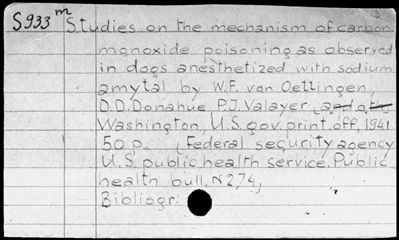 S933 m Studies on the mechanism of carbon
monoxide poisoning as observed
in dogs anesthetized with sodium
amytal by W.F. van Oettingen,
D.D. Donahue P.J. Valayer,
Washington, U.S. gov. print. off., 1941
50 p. (Federal security agency
U.S. public health service. Public
health bull. N 274,
Bibliogr: